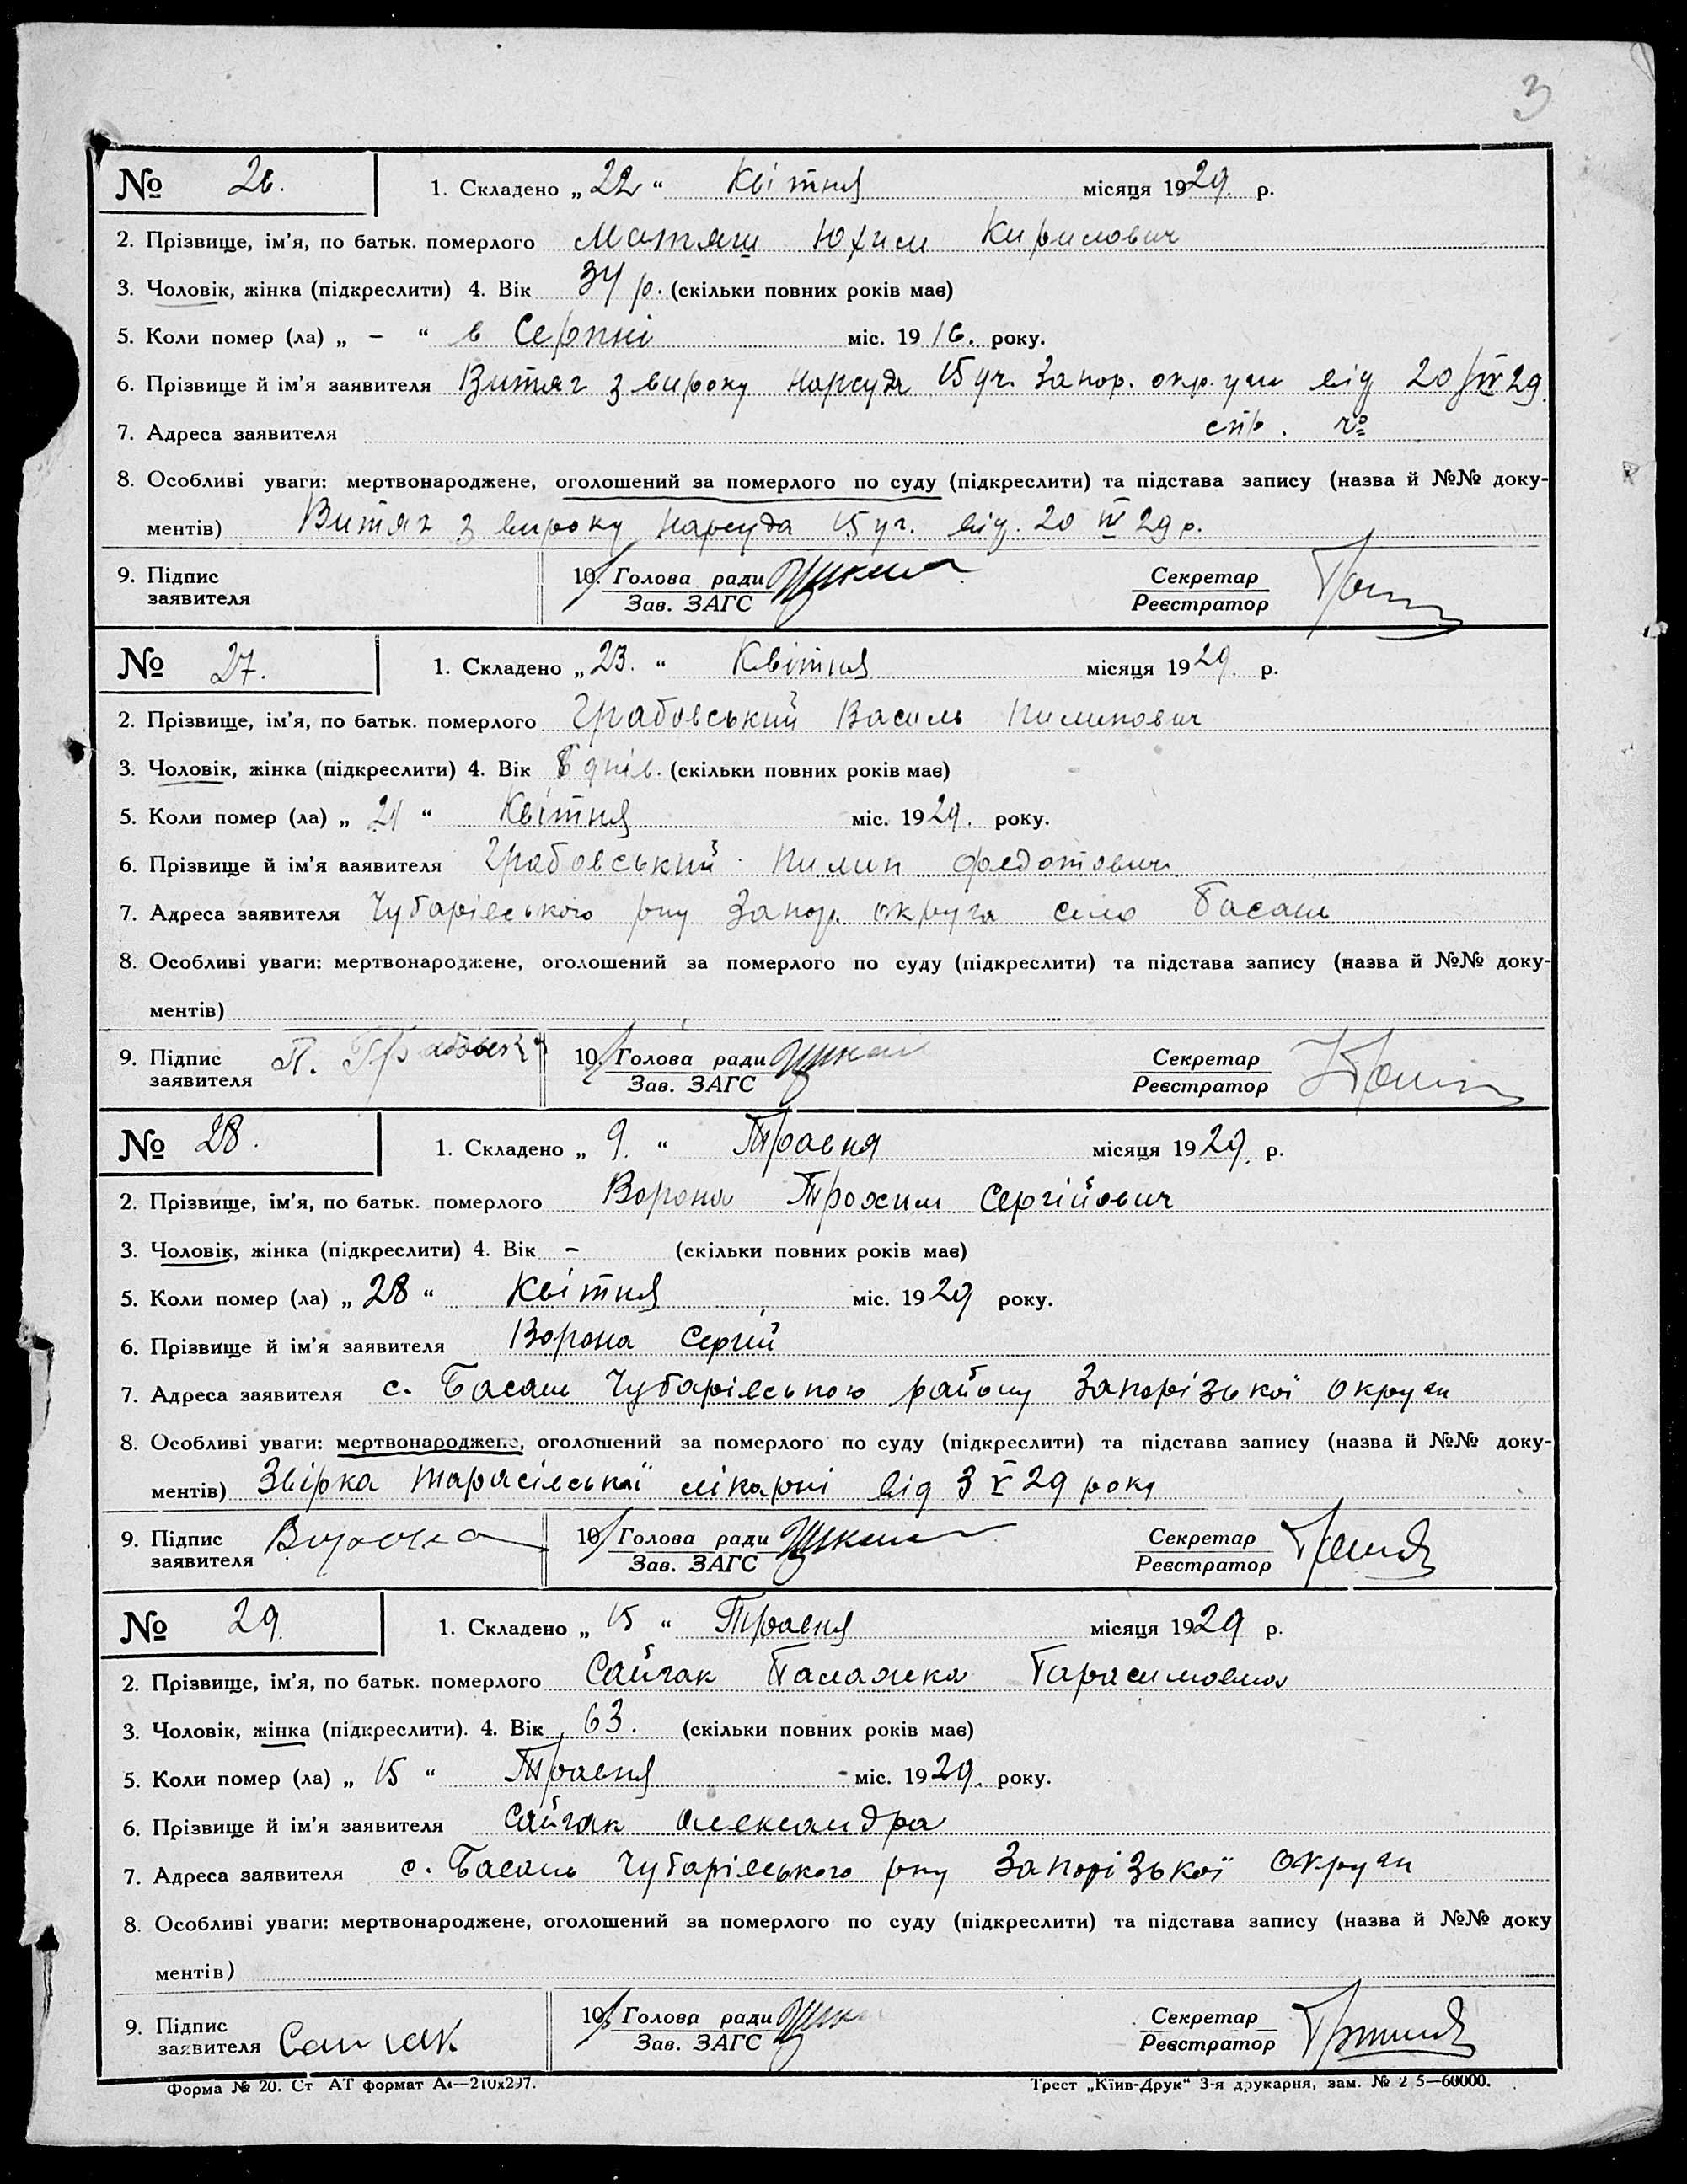 3
№ 26. 1. Складено „ 22 “ Квітня місяця 1929. р.
2. Прізвище, ім’я, по батьк. померлого Матяш Юхим Кирилович
3. Чоловік, жінка (підкреслити) 4. Вік 34 р. (скільки повних років має)
5. Коли помер (ла) „ – “ в Серпні міс. 1916. року.
6. Прізвище й ім’я заявителя Витяг з вироку нарсуда 15 уч. Запор. окр. від 20/IV 29.
7. Адреса заявителя стр. №
8. Особливі уваги: мертвонароджене, оголошений за померлого по суду (підкреслити) та підстава запису (назва й №№ доку-
ментів) Витяг з вироку нарсуда 15 уч. від. 20 IV 29 р.
9. Підпис 10. Голова ради Секретар
заявителя Зав. ЗАГС Реєстратор
№ 27. 1. Складено „ 23. “ Квітня місяця 1929. р.
2. Прізвище, ім’я, по батьк. померлого Грабовський Василь Пилипович
3. Чоловік, жінка (підкреслити) 4. Вік днів. (скільки повних років має)
5. Коли помер (ла) „ 21 “ Квітня міс. 1929. року.
6. Прізвище й ім’я заявителя Грабовський Пилип Федотович
7. Адреса заявителя Чубарівського рну Запор. округа село Басань
8. Особливі уваги: мертвонароджене, оголошений за померлого по суду (підкреслити) та підстава запису (назва й №№ доку-
ментів)
9. Підпис П. 10. Голова ради Секретар
заявителя Зав. ЗАГС Реєстратор
№ 28. 1. Складено „ 9. “ Травня місяця 1929. р.
2. Прізвище, ім’я, по батьк. померлого Ворона Трохим Сергійович
3. Чоловік, жінка (підкреслити) 4. Вік – (скільки повних років має)
5. Коли помер (ла) „ 28 “ Квітня міс. 1929 року.
6. Прізвище й ім’я заявителя Ворона Сергій
7. Адреса заявителя с. Басань Чубарівського району Запорізької округи
8. Особливі уваги: мертвонароджене, оголошений за померлого по суду (підкреслити) та підстава запису (назва й №№ доку-
ментів) Звірка Тарасівської лікарні від 3 V 29 року
9. Підпис Ворона 10. Голова ради Секретар
заявителя Зав. ЗАГС Реєстратор
№ 29. 1. Складено „ 15 “ Травня місяця 1929 р.
2. Прізвище, ім’я, по батьк. померлого Сайгак Палажка Гарасимовна
3. Чоловік, жінка (підкреслити). 4. Вік 63. (скільки повних років має)
5. Коли помер (ла) „ 15 “ Травня міс. 1929. року.
6. Прізвище й ім’я заявителя Сайгак Олександра
7. Адреса заявителя с. Басань Чубарівського рну Запорізької округи
8. Особливі уваги: мертвонароджене, оголошений за померлого по суду (підкреслити) та підстава запису (назва й №№ доку
ментів)
9. Підпис 10. Голова ради Секретар
заявителя Сайгак Зав. ЗАГС Реєстратор
Форма № 20. Ст АТ формат А4—210х297. Трест „Київ-Друк“ 3-я друкарня, зам. № 2 5—60000.